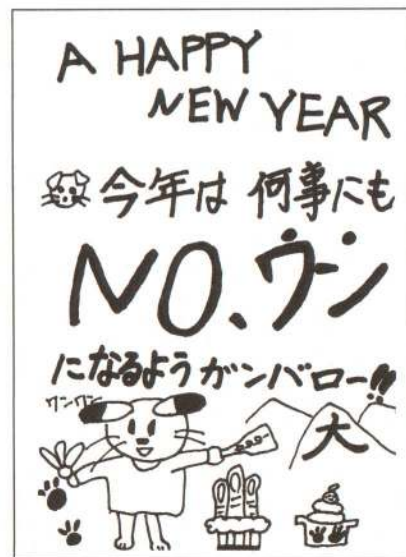 A HAPPY
NEW YEAR
今年は 何事にも
NO、ワン
になるようガンバロー!!
ワンワン
大